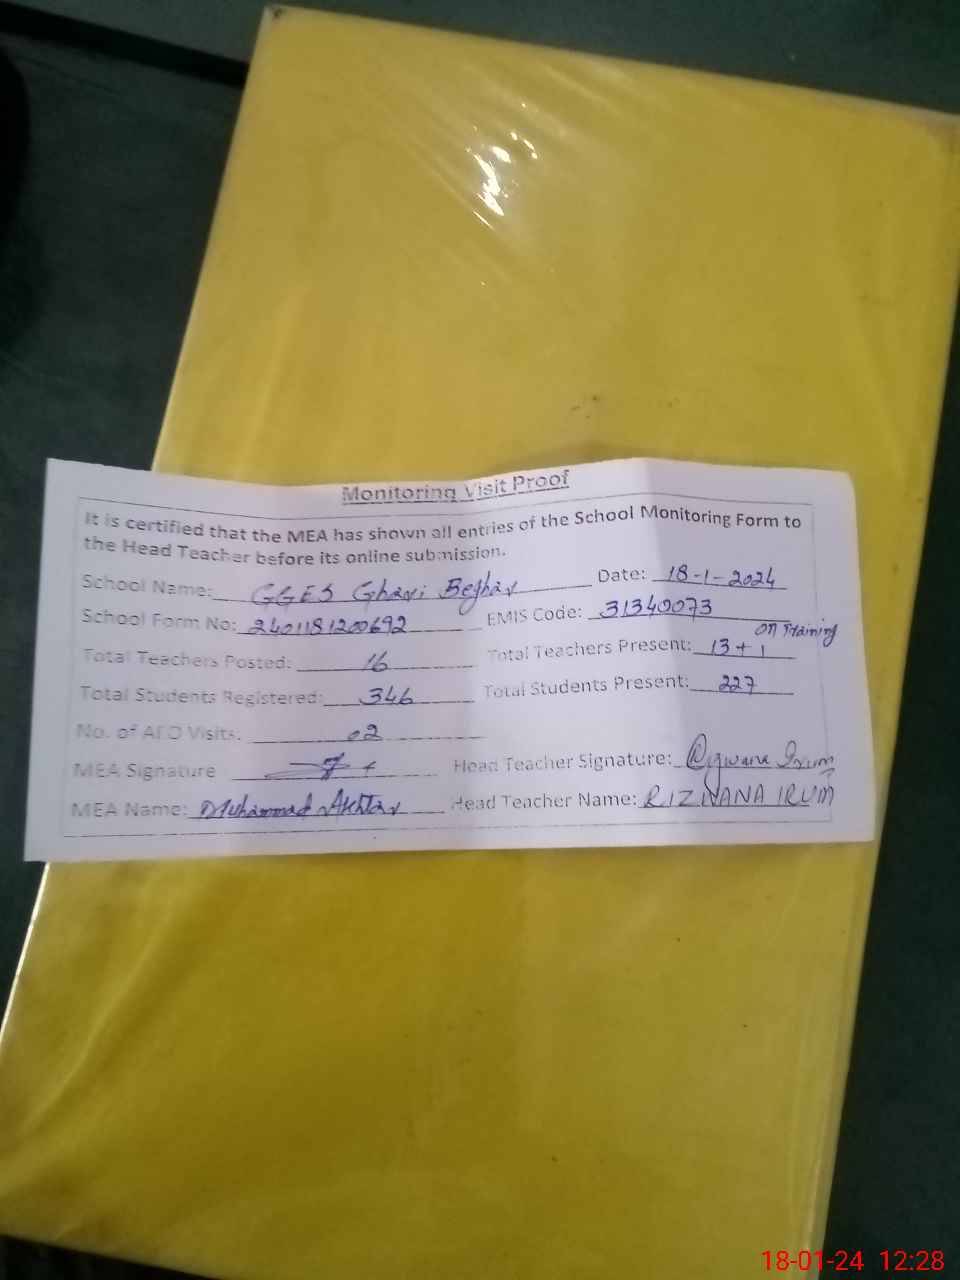 Monitoring Visit Proof
It is certified that the MEA has shown all entries of the School Monitoring Form to
the Head Teacher before its online submission.
School Name: GGES Ghari Beghar Date: 18-1-2024
School Form No: 2401181200692 EMIS Code: 31340073
Total Teachers Posted: 16 Total Teachers Present: 13+1 on Training
Total Students Registered: 346 Total Students Present: 227
No. of AEO Visits: 02
MEA Signature Head Teacher Signature: Rizwana Irum
MEA Name: Muhammad Akhtar Head Teacher Name: RIZWANA IRUM
18-01-24 12:28